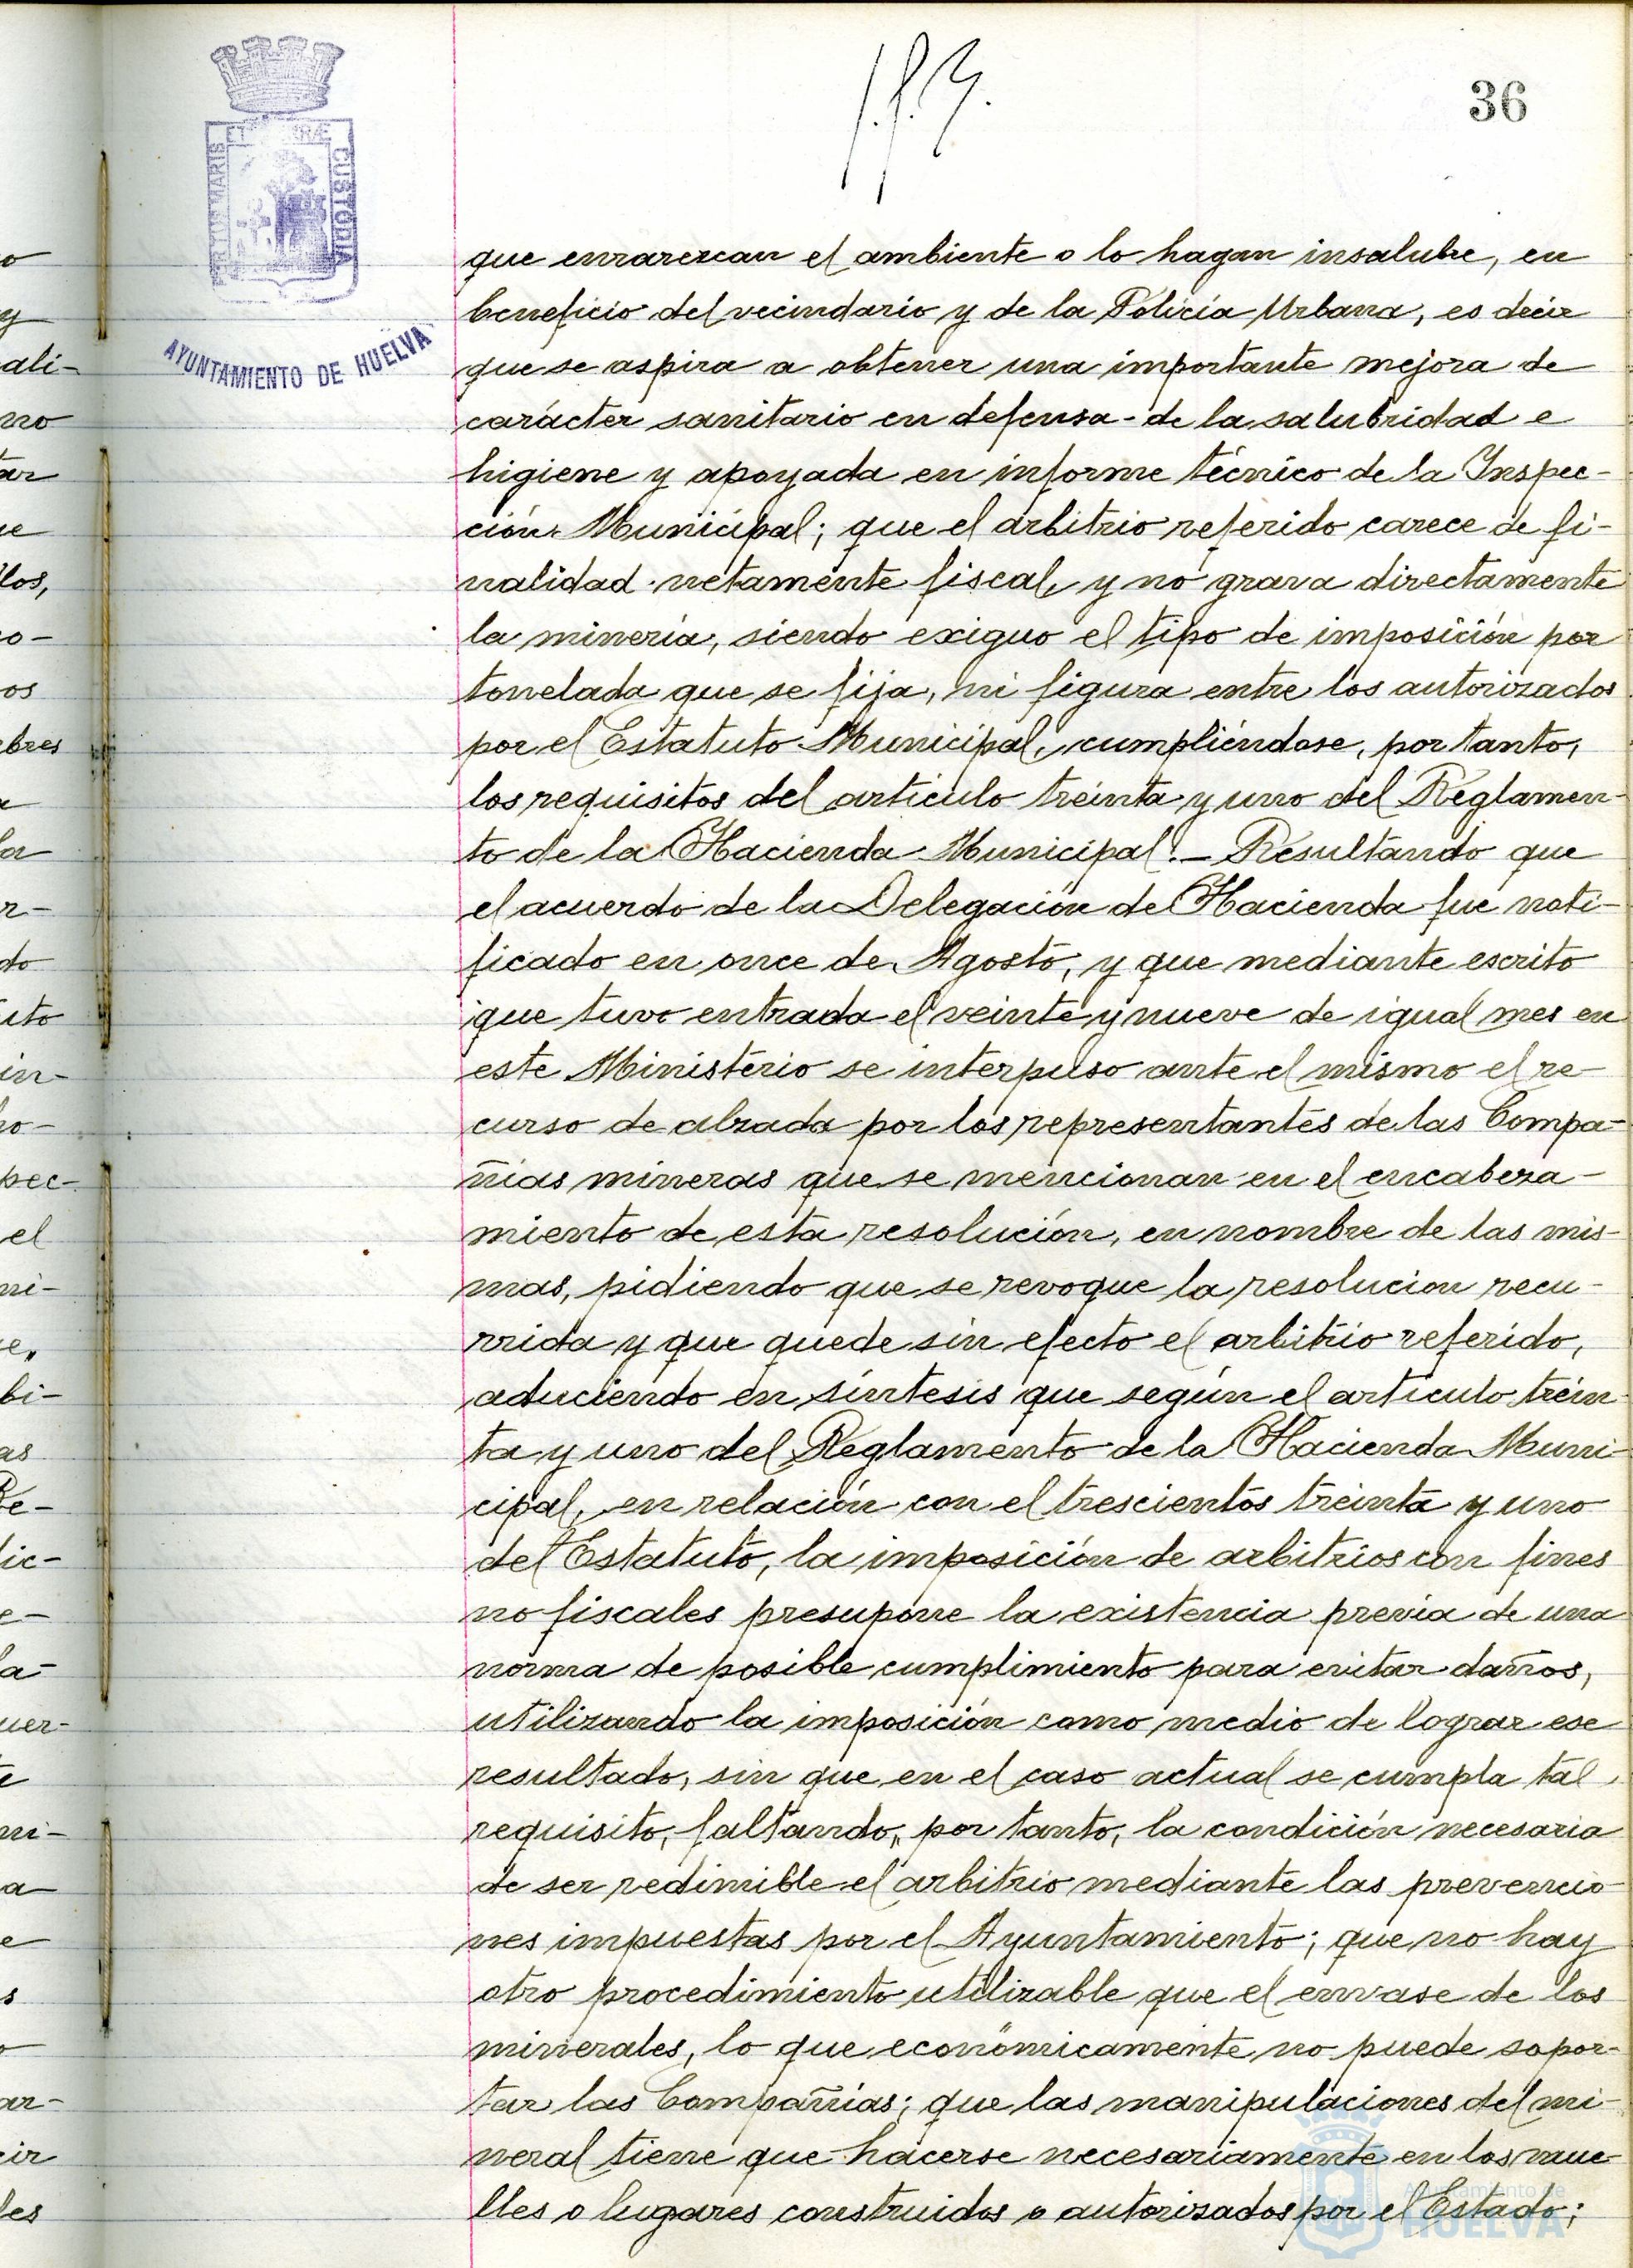 36
PORTUS MARIS ET TERRÆ CUSTODIA
AYUNTAMIENTO DE HUELVA
que enrarezcan el ambiente o lo hagan insalubre, en
beneficio del vecindario y de la Policía Urbana, es decir
que se aspira a obtener una importante mejora de
carácter sanitario en defensa de la salubridad e
higiene y apoyada en informe técnico de la Inspec-
ción Municipal; que el arbitrio referido carece de fi-
nalidad netamente fiscal, y no grava directamente
la minería, siendo exiguo el tipo de imposición por
tonelada que se fija, ni figura entre los autorizados
por el Estatuto Municipal, cumpliéndose, por tanto,
los requisitos del artículo treinta y uno del Reglamen-
to de la Hacienda Municipal.- Resultando que
el acuerdo de la Delegación de Hacienda fue noti-
ficado en once de Agosto, y que mediante escrito
que tuvo entrada el veinte y nueve de igual mes en
este Ministerio se interpuso ante el mismo el re-
curso de alzada por los representantes de las Compa-
ñias mineras que se mencionan en el encabeza-
miento de esta resolución, en nombre de las mis-
mas, pidiendo que se revoque la resolucion recu-
rrida y que quede sin efecto el arbitrio referido,
aduciendo en síntesis que según el artículo trein-
ta y uno del Reglamento de la Hacienda Muni-
cipal, en relación con el trescientos treinta y uno
del Estatuto, la imposición de arbitrios con fines
no fiscales presupone la existencia previa de una
norma de posible cumplimiento para evitar daños,
utilizando la imposición como medio de lograr ese
resultado, sin que en el caso actual se cumpla tal
requisito, faltando, por tanto, la condición necesaria
de ser redimible el arbitrio mediante las prevencio-
nes impuestas por el Ayuntamiento; que no hay
otro procedimiento utilizable que el envase de los
minerales, lo que económicamente no puede sopor-
tar las Compañias; que las manipulaciones del mi-
neral tiene que hacerse necesariamente en los mue-
lles o lugares construidos o autorizados por el Estado;
Ayuntamiento de
HUELVA